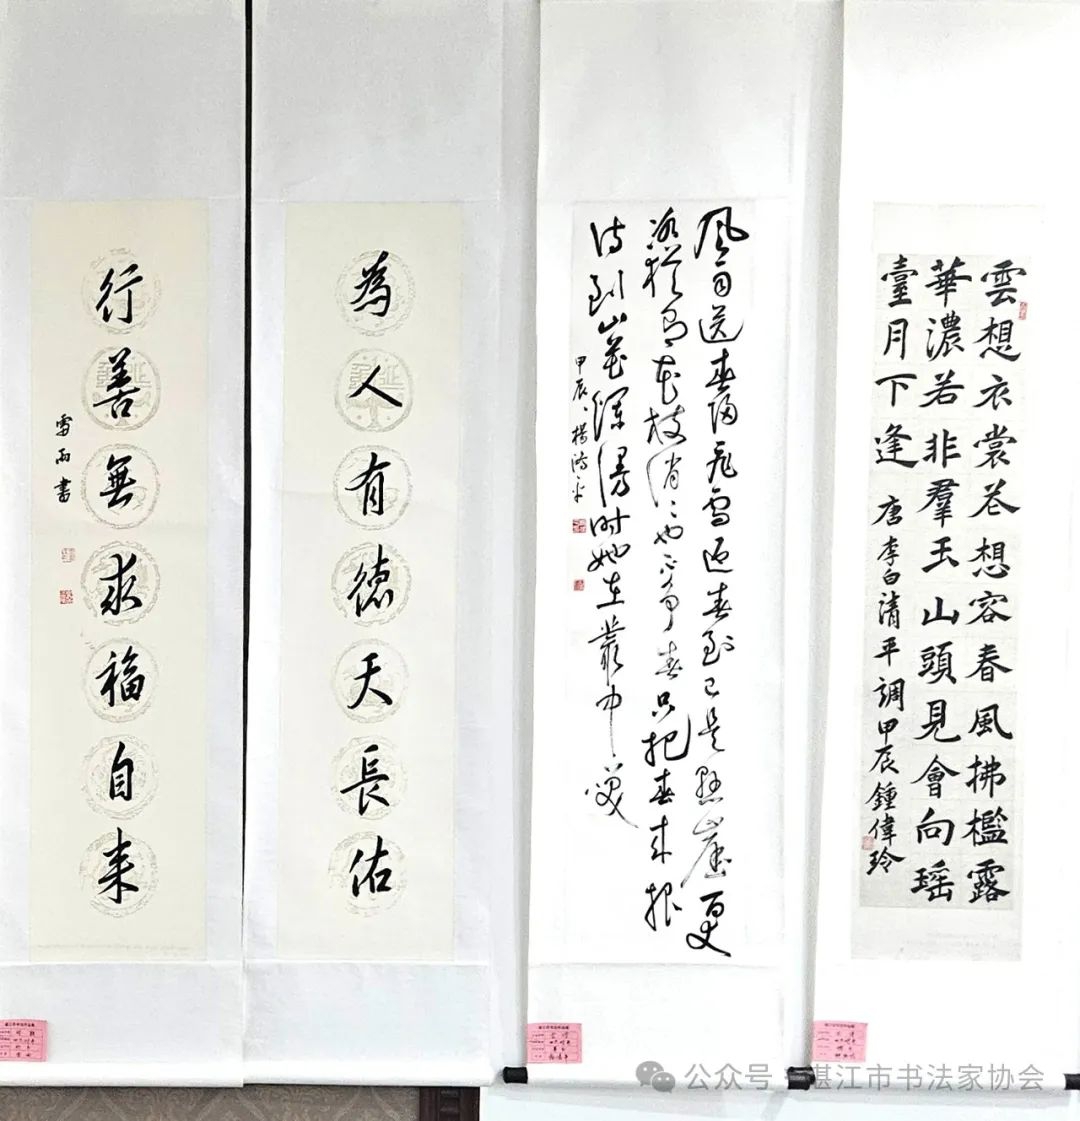 雲想衣裳花想容春風拂檻露
華濃若非羣玉山頭見會向瑶
臺月下逢
唐李白清平調甲辰鍾偉玲
風雨送春歸飛雪迎春到已是懸崖百丈
冰猶有花枝俏〻也不爭春只把春來報
待到山花爛漫時她在叢中笑
甲辰楊
為人有德天長佑
行善無求福自来
雨書
公众号·湛江市书法家协会